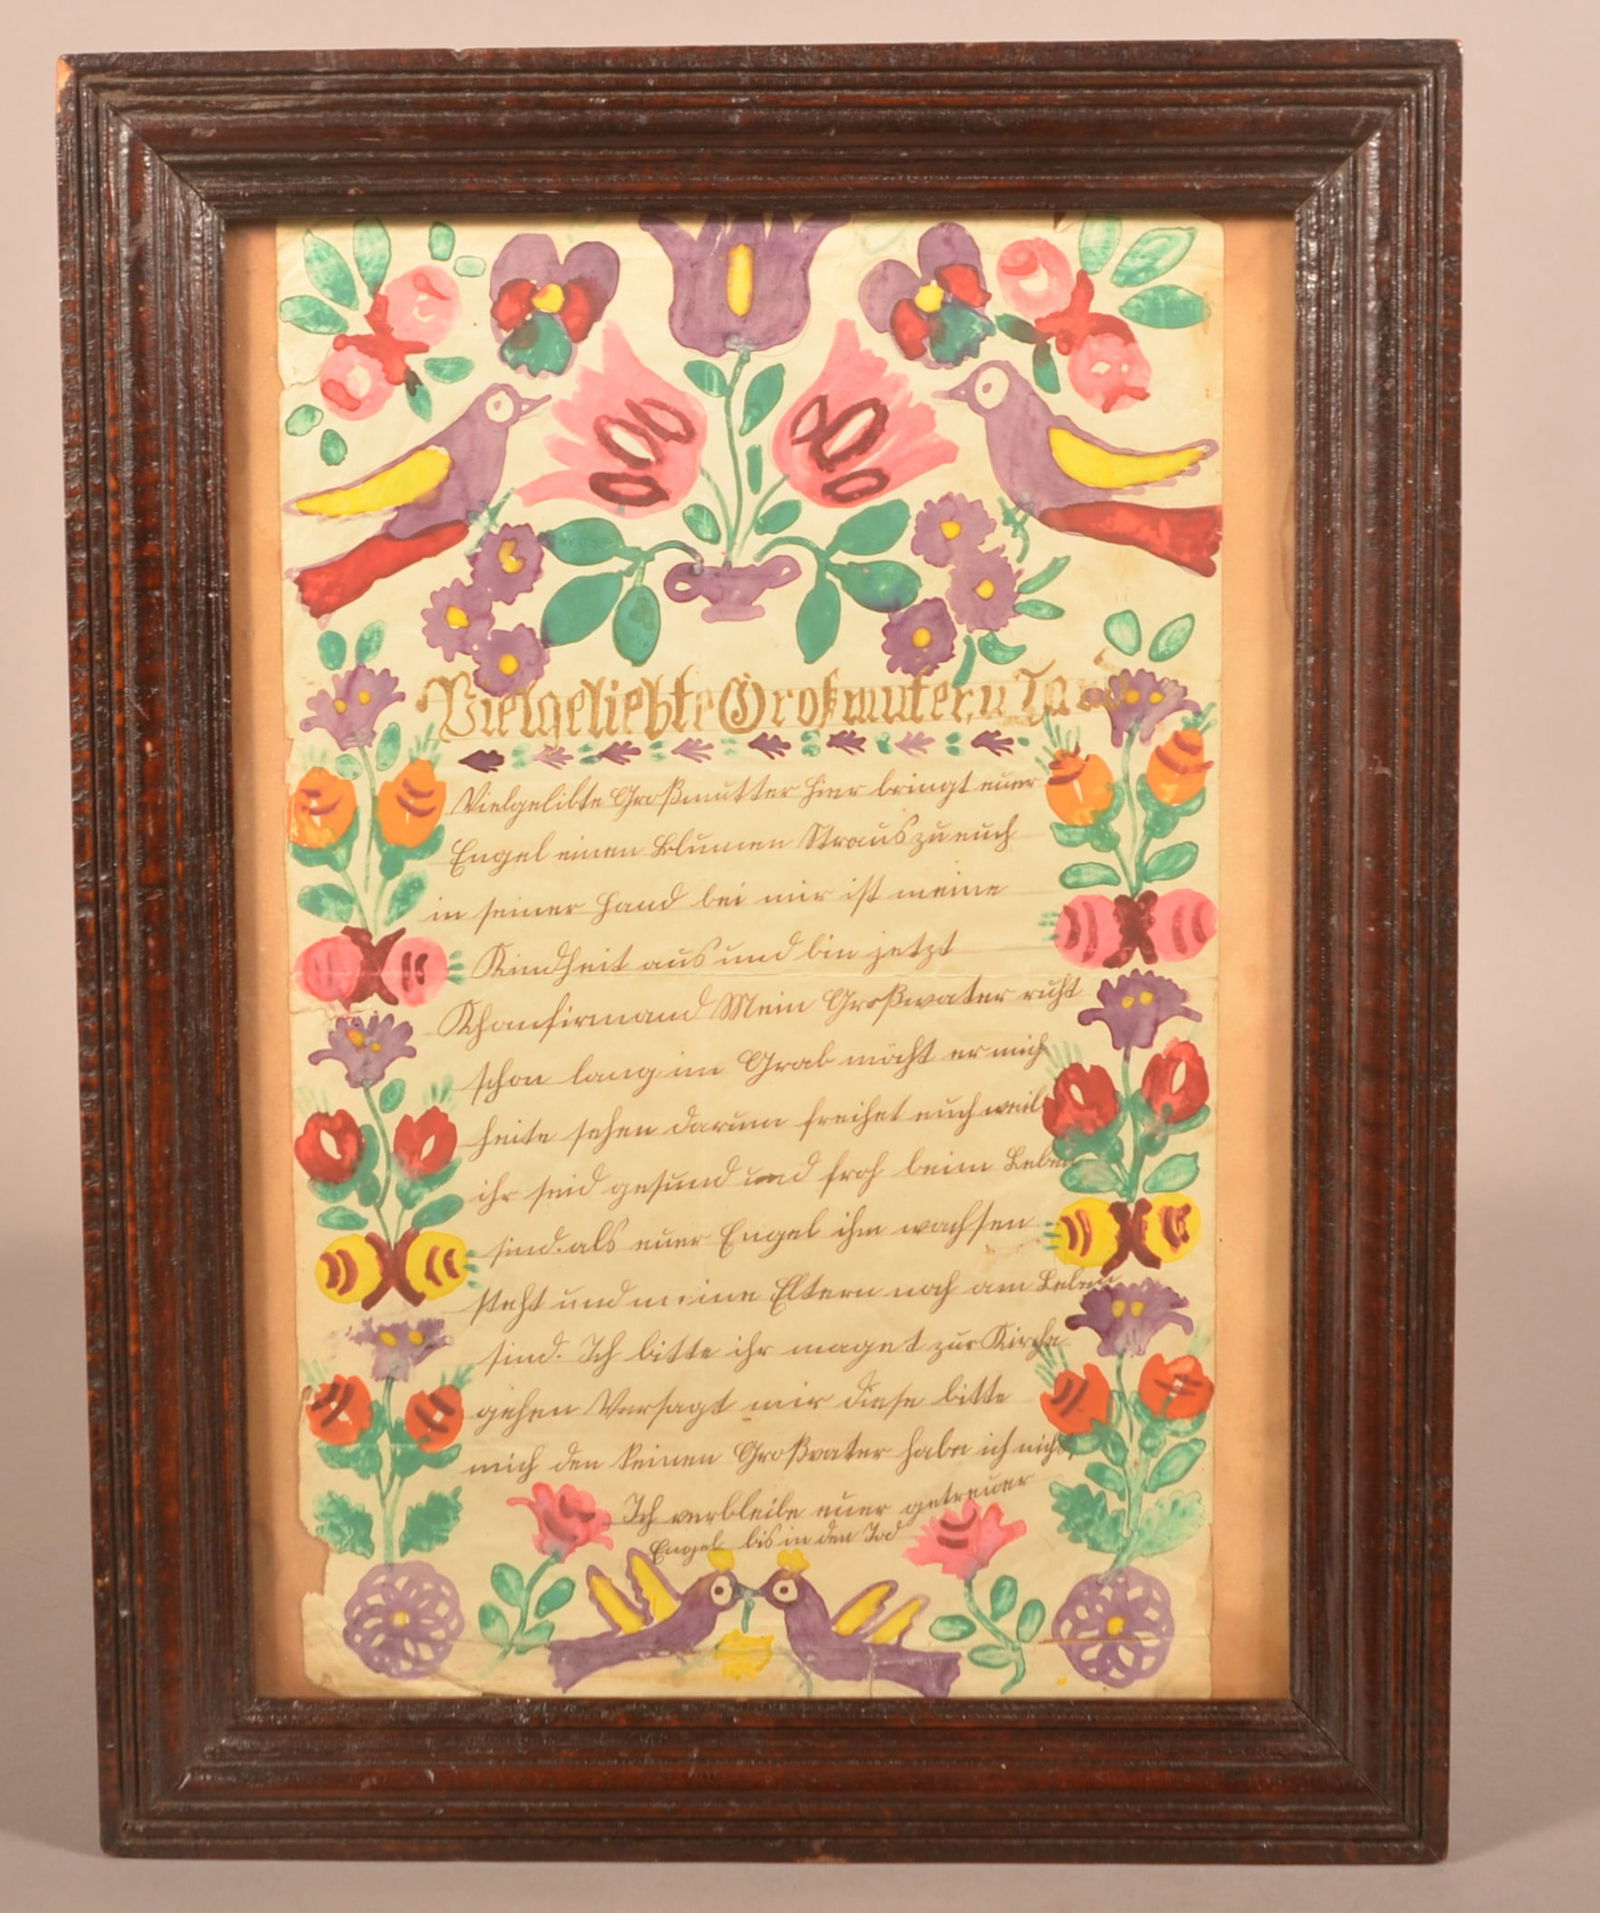 Vielgeliebte Großmuter, u
Vielgelibte Großmutter hier bringt euer
Engel einen Blumen Straus zu euch
in seiner Hand bei mir ist meine
Kindheit aus und bin jetzt
Khonfirmand Mein Großwater ruht
schon lang im Grab möcht er mich
heite sehen darum freihet euch weil
ihr seid gesund und froh beim Leben
sind. als euer Engel ihm wachsen
steht und meine Eltern noch am Leben
sind. Ich bitte ihr maget zur Kirche
gehen Versagt mir diese bitte
mich den keinen Großvater habe ich nicht
Ich verbleibe euer getreuer
Engel bis in den Tod